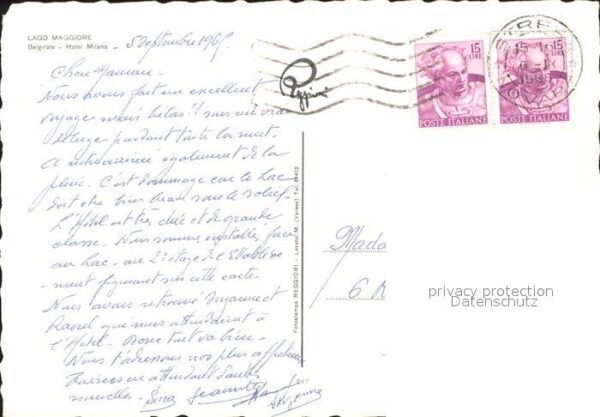 LAGO MAGGIORE
Belgirate - Hotel Milano
5 Septembre 196
Chère Maman.
Nous avons fait un excellent
voyage mais hélas!! sous un vrai
déluge pendant toute la nuit.
A notre arrivée également de la
pluie. C'est dommage car le Lac
doit être bien beau sous le soleil.
L'Hôtel est très chic et de grande
classe. Nous sommes installés face
au Lac. au 2e étage de l'Etablisse
-ment figurant sur cette carte.
Nous avons retrouvé Suzanne et
Raoul qui nous attendaient à
l'Hôtel. Donc tout va bien.
Nous t'adressons nos plus affectueux
Baisers en attendant d'autres
nouvelles.
Reggiori
15 LIRE
POSTE ITALIANE
15 LIRE
POSTE ITALIANE
STRESA
NOVARA
Fotostampa REGGIORI - Laveno M. (Varese) Tel.
Mada
6 R
privacy protection
Datenschutz